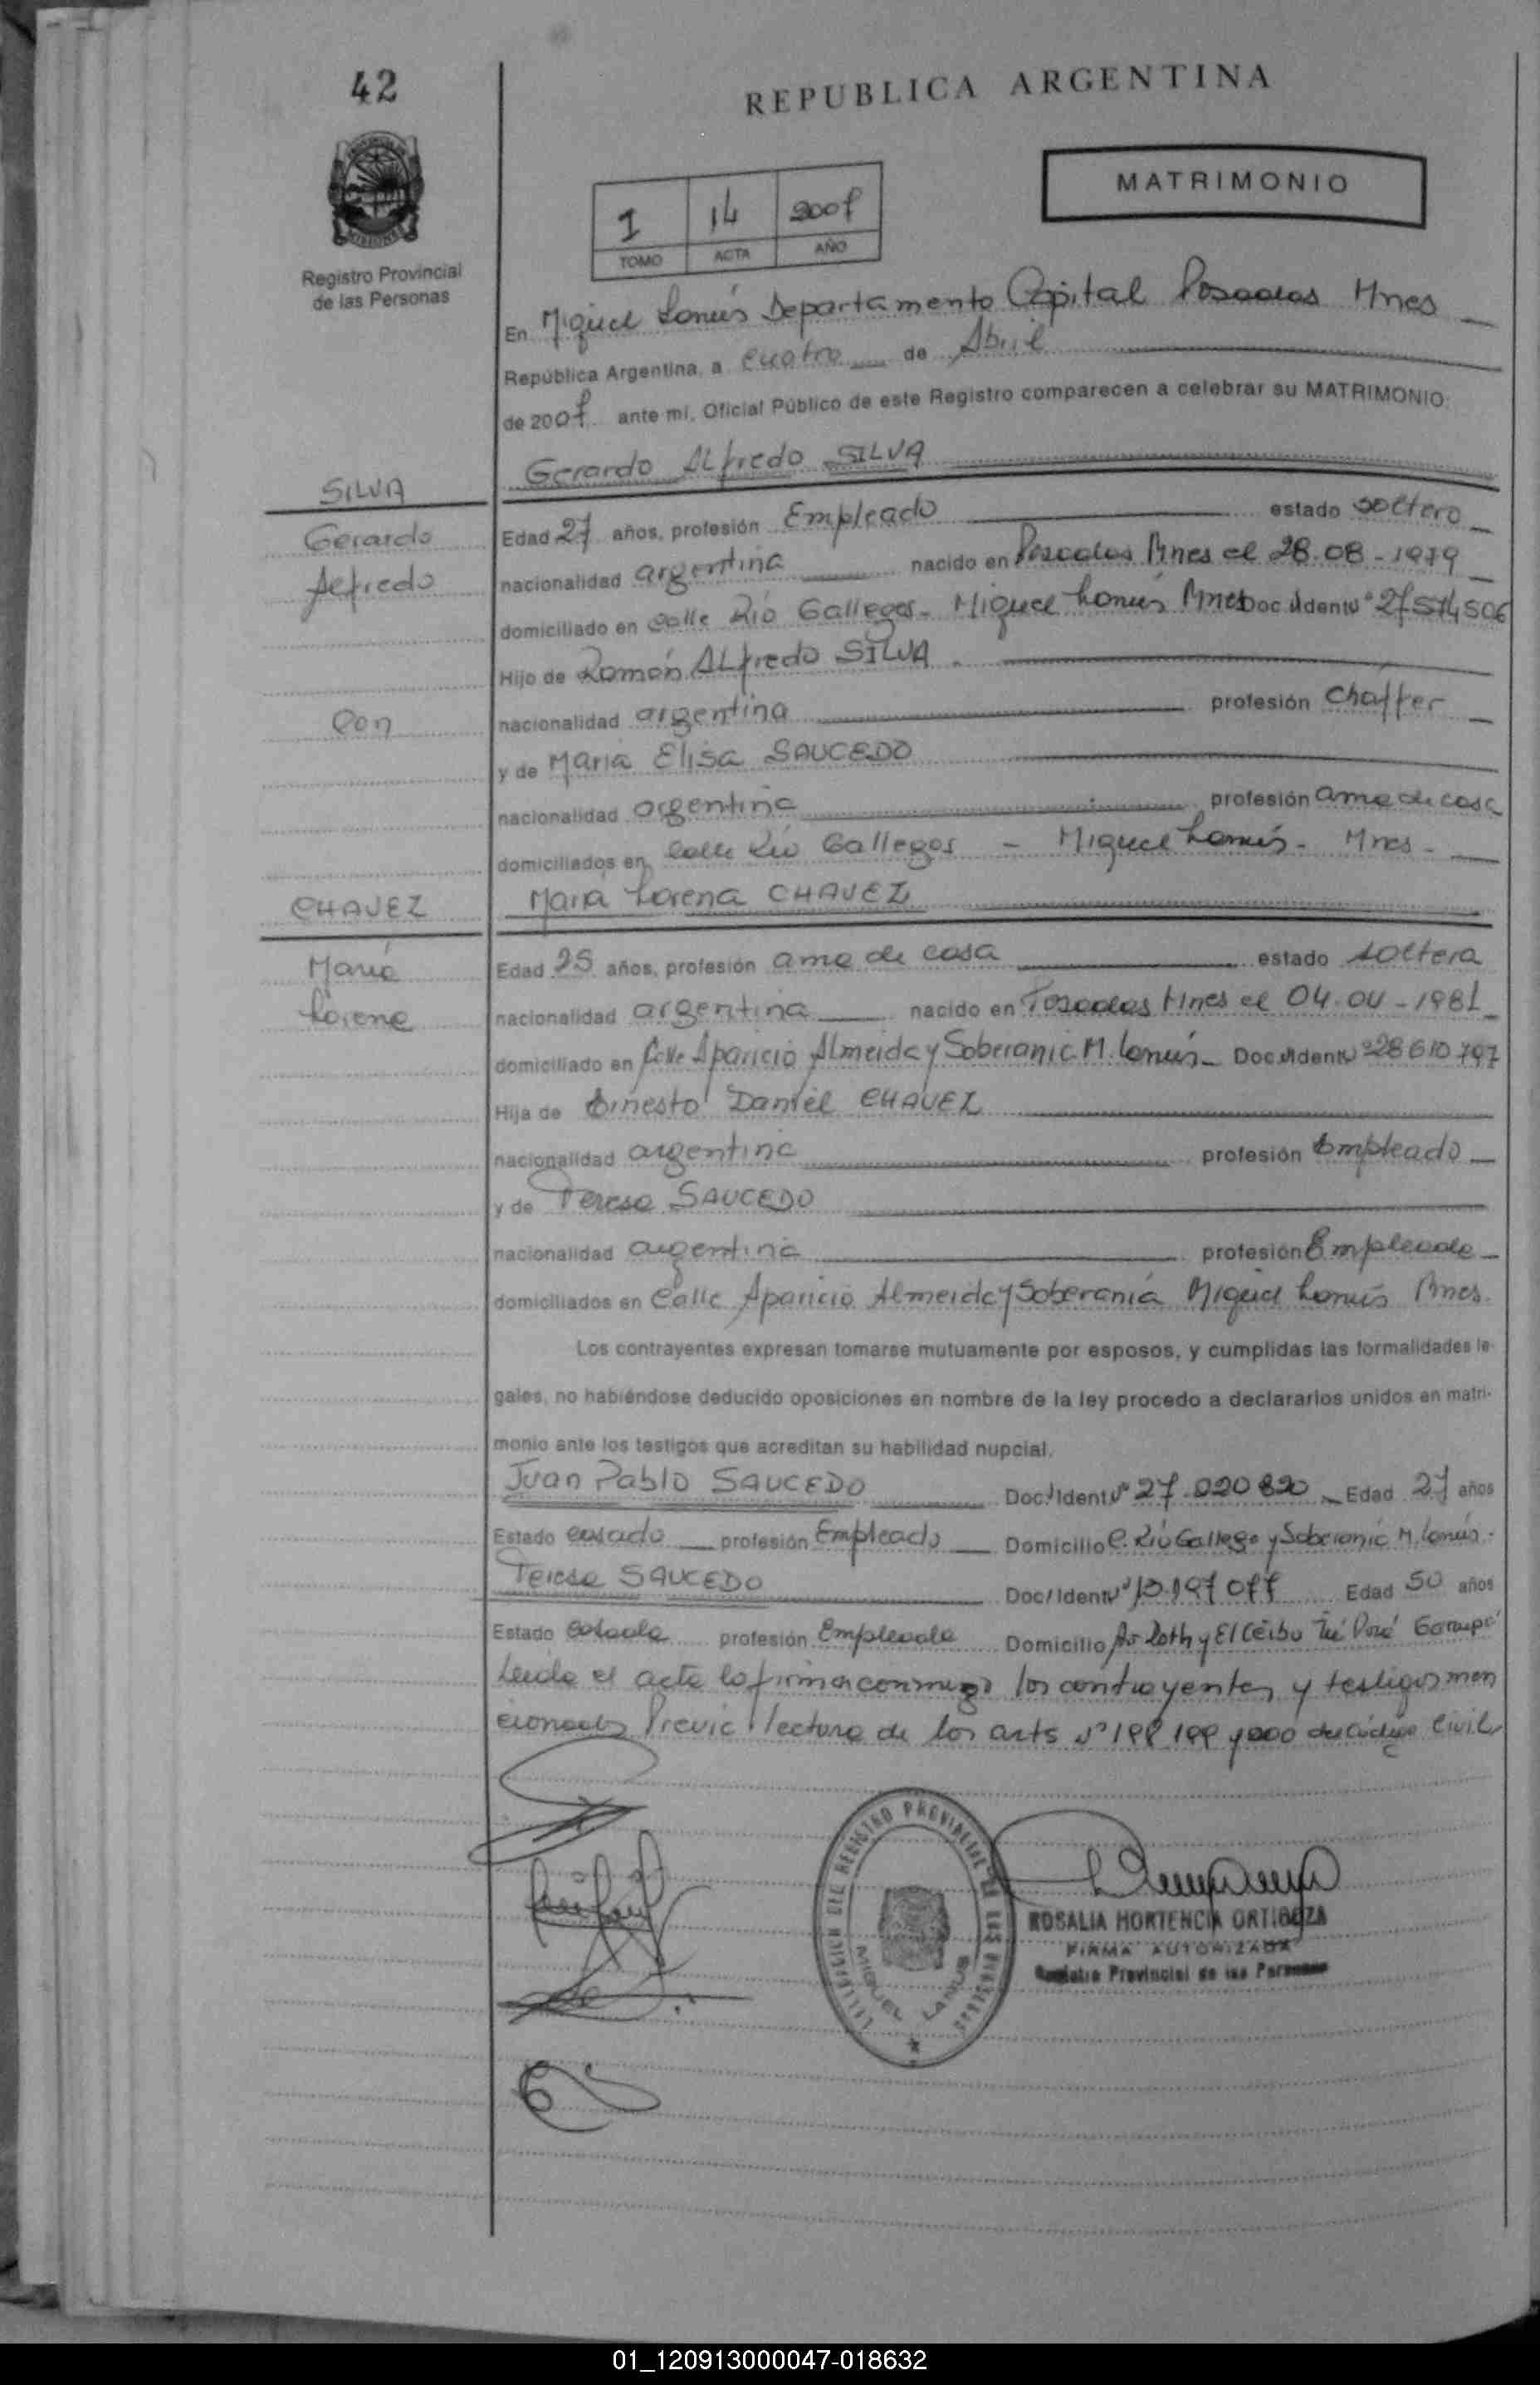 42
REPUBLICA ARGENTINA
MATRIMONIO
1 14 2007
TOMO ACTA AÑO
Registro Provincial
de las Personas
En Miguel Lanús Departamento Capital Posadas Mnes
República Argentina, a cuatro de Abril
de 2007 ante mi, Oficial Público de este Registro comparecen a celebrar su MATRIMONIO:
Gerardo Alfredo SILVA
SILVA
Gerardo
Alfredo
Edad 27 años, profesión Empleado estado soltero
nacionalidad argentina nacido en Posadas Mnes el 28-08-1979
domiciliado en calle Río Gallegos - Miguel Lanús Mnes Doc. Ident. Nº 27574506
Hijo de Ramón Alfredo SILVA
con
nacionalidad argentina profesión Chaffer
y de María Elisa SAUCEDO
nacionalidad argentina profesión ama de casa
domiciliados en calle Río Gallegos - Miguel Lanús - Mnes -
María Lorena CHAVEZ
CHAVEZ
María
Lorena
Edad 25 años, profesión ama de casa estado soltera
nacionalidad argentina nacido en Posadas Mnes el 04-04-1981
domiciliado en Calle Aparicio Almeida y Soberanía M. Lanús - Doc. Ident. Nº 28610797
Hija de Ernesto Daniel CHAVEZ
nacionalidad argentina profesión Empleado
y de Teresa SAUCEDO
nacionalidad argentina profesión Empleada
domiciliados en Calle Aparicio Almeida y Soberanía Miguel Lanús Mnes.
Los contrayentes expresan tomarse mutuamente por esposos, y cumplidas las formalidades le-
gales, no habiéndose deducido oposiciones en nombre de la ley procedo a declararlos unidos en matri-
monio ante los testigos que acreditan su habilidad nupcial.
Juan Pablo SAUCEDO Doc. Ident. Nº 27.020820 Edad 27 años
Estado casado profesión Empleado Domicilio C. Río Gallego y Soberanía M. Lanús.
Teresa SAUCEDO Doc/Ident Nº 13.197077 Edad 50 años
Estado casada profesión Empleada Domicilio Av Roth y El Ceibo Garupá
Leída el acta la firman conmigo los contrayentes y testigos men
cionados Previa lectura de los arts Nº 198 199 y 200 del Código Civil
REGISTRO PROVINCIAL DE LAS PERSONAS
MIGUEL LANUS
ROSALIA HORTENCIA ORTIGOZA
FIRMA AUTORIZADA
Registro Provincial de las Personas
01_120913000047-018632